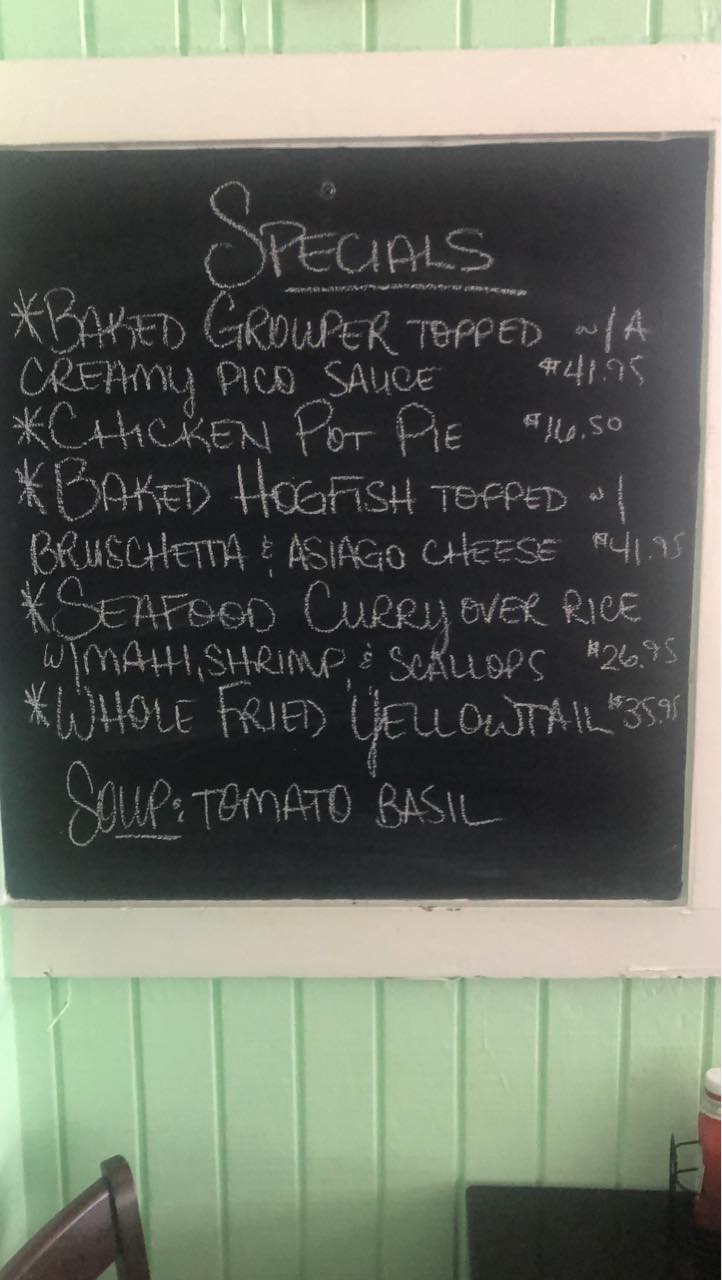 SPECIALS
*BAKED GROUPER TOPPED w/A
CREAMY PICO SAUCE $41.95
*CHICKEN POT PIE $16.50
*BAKED HOGFISH TOPPED w/
BRUSCHETTA & ASIAGO CHEESE $41.95
*SEAFOOD CURRY OVER RICE
W/MAHI, SHRIMP, & SCALLOPS $26.95
*WHOLE FRIED YELLOWTAIL $35.95
SOUP: TOMATO BASIL